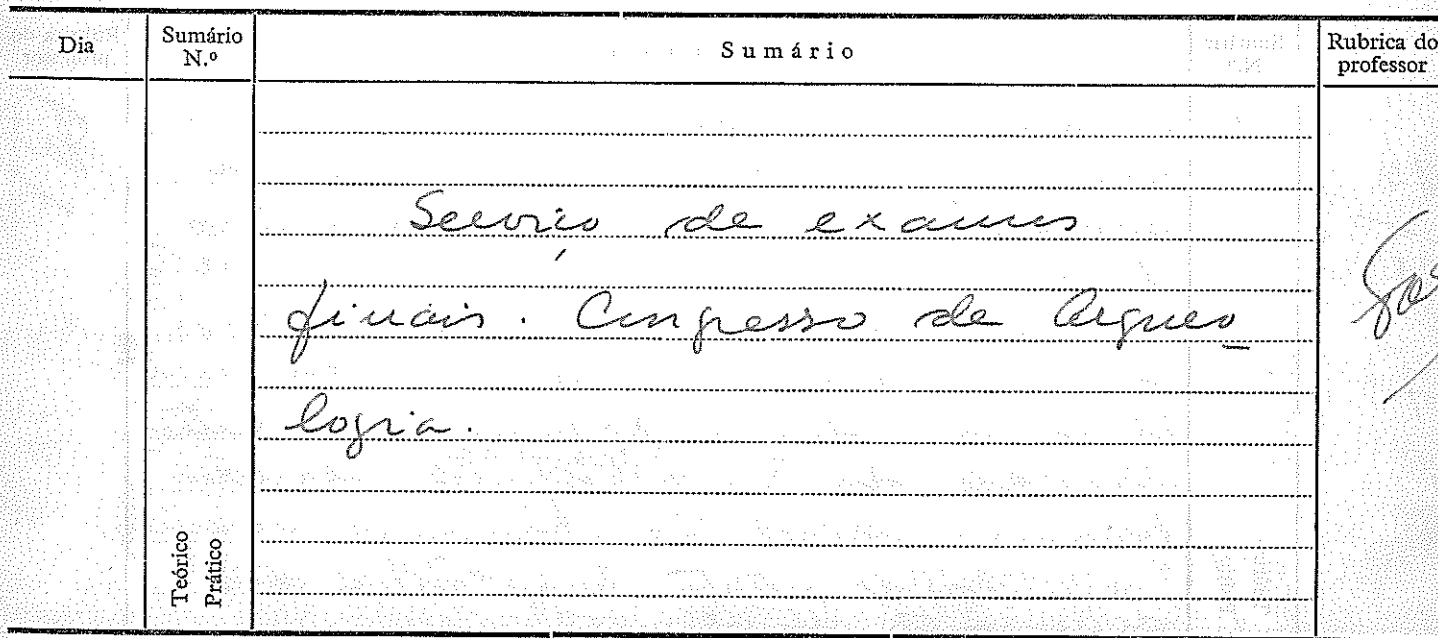 Dia
Sumário N.º
Sumário
Rubrica do professor
Serviço de exames
finais. Congresso de Arqueo
logia.
Teórico
Prático